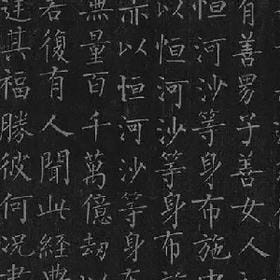 有善男子善女人
恒河沙等身布施
以恒河沙等身布
亦以恒河沙等身
無量百千萬億劫
若復有人聞此經典
逆其福勝彼何況書